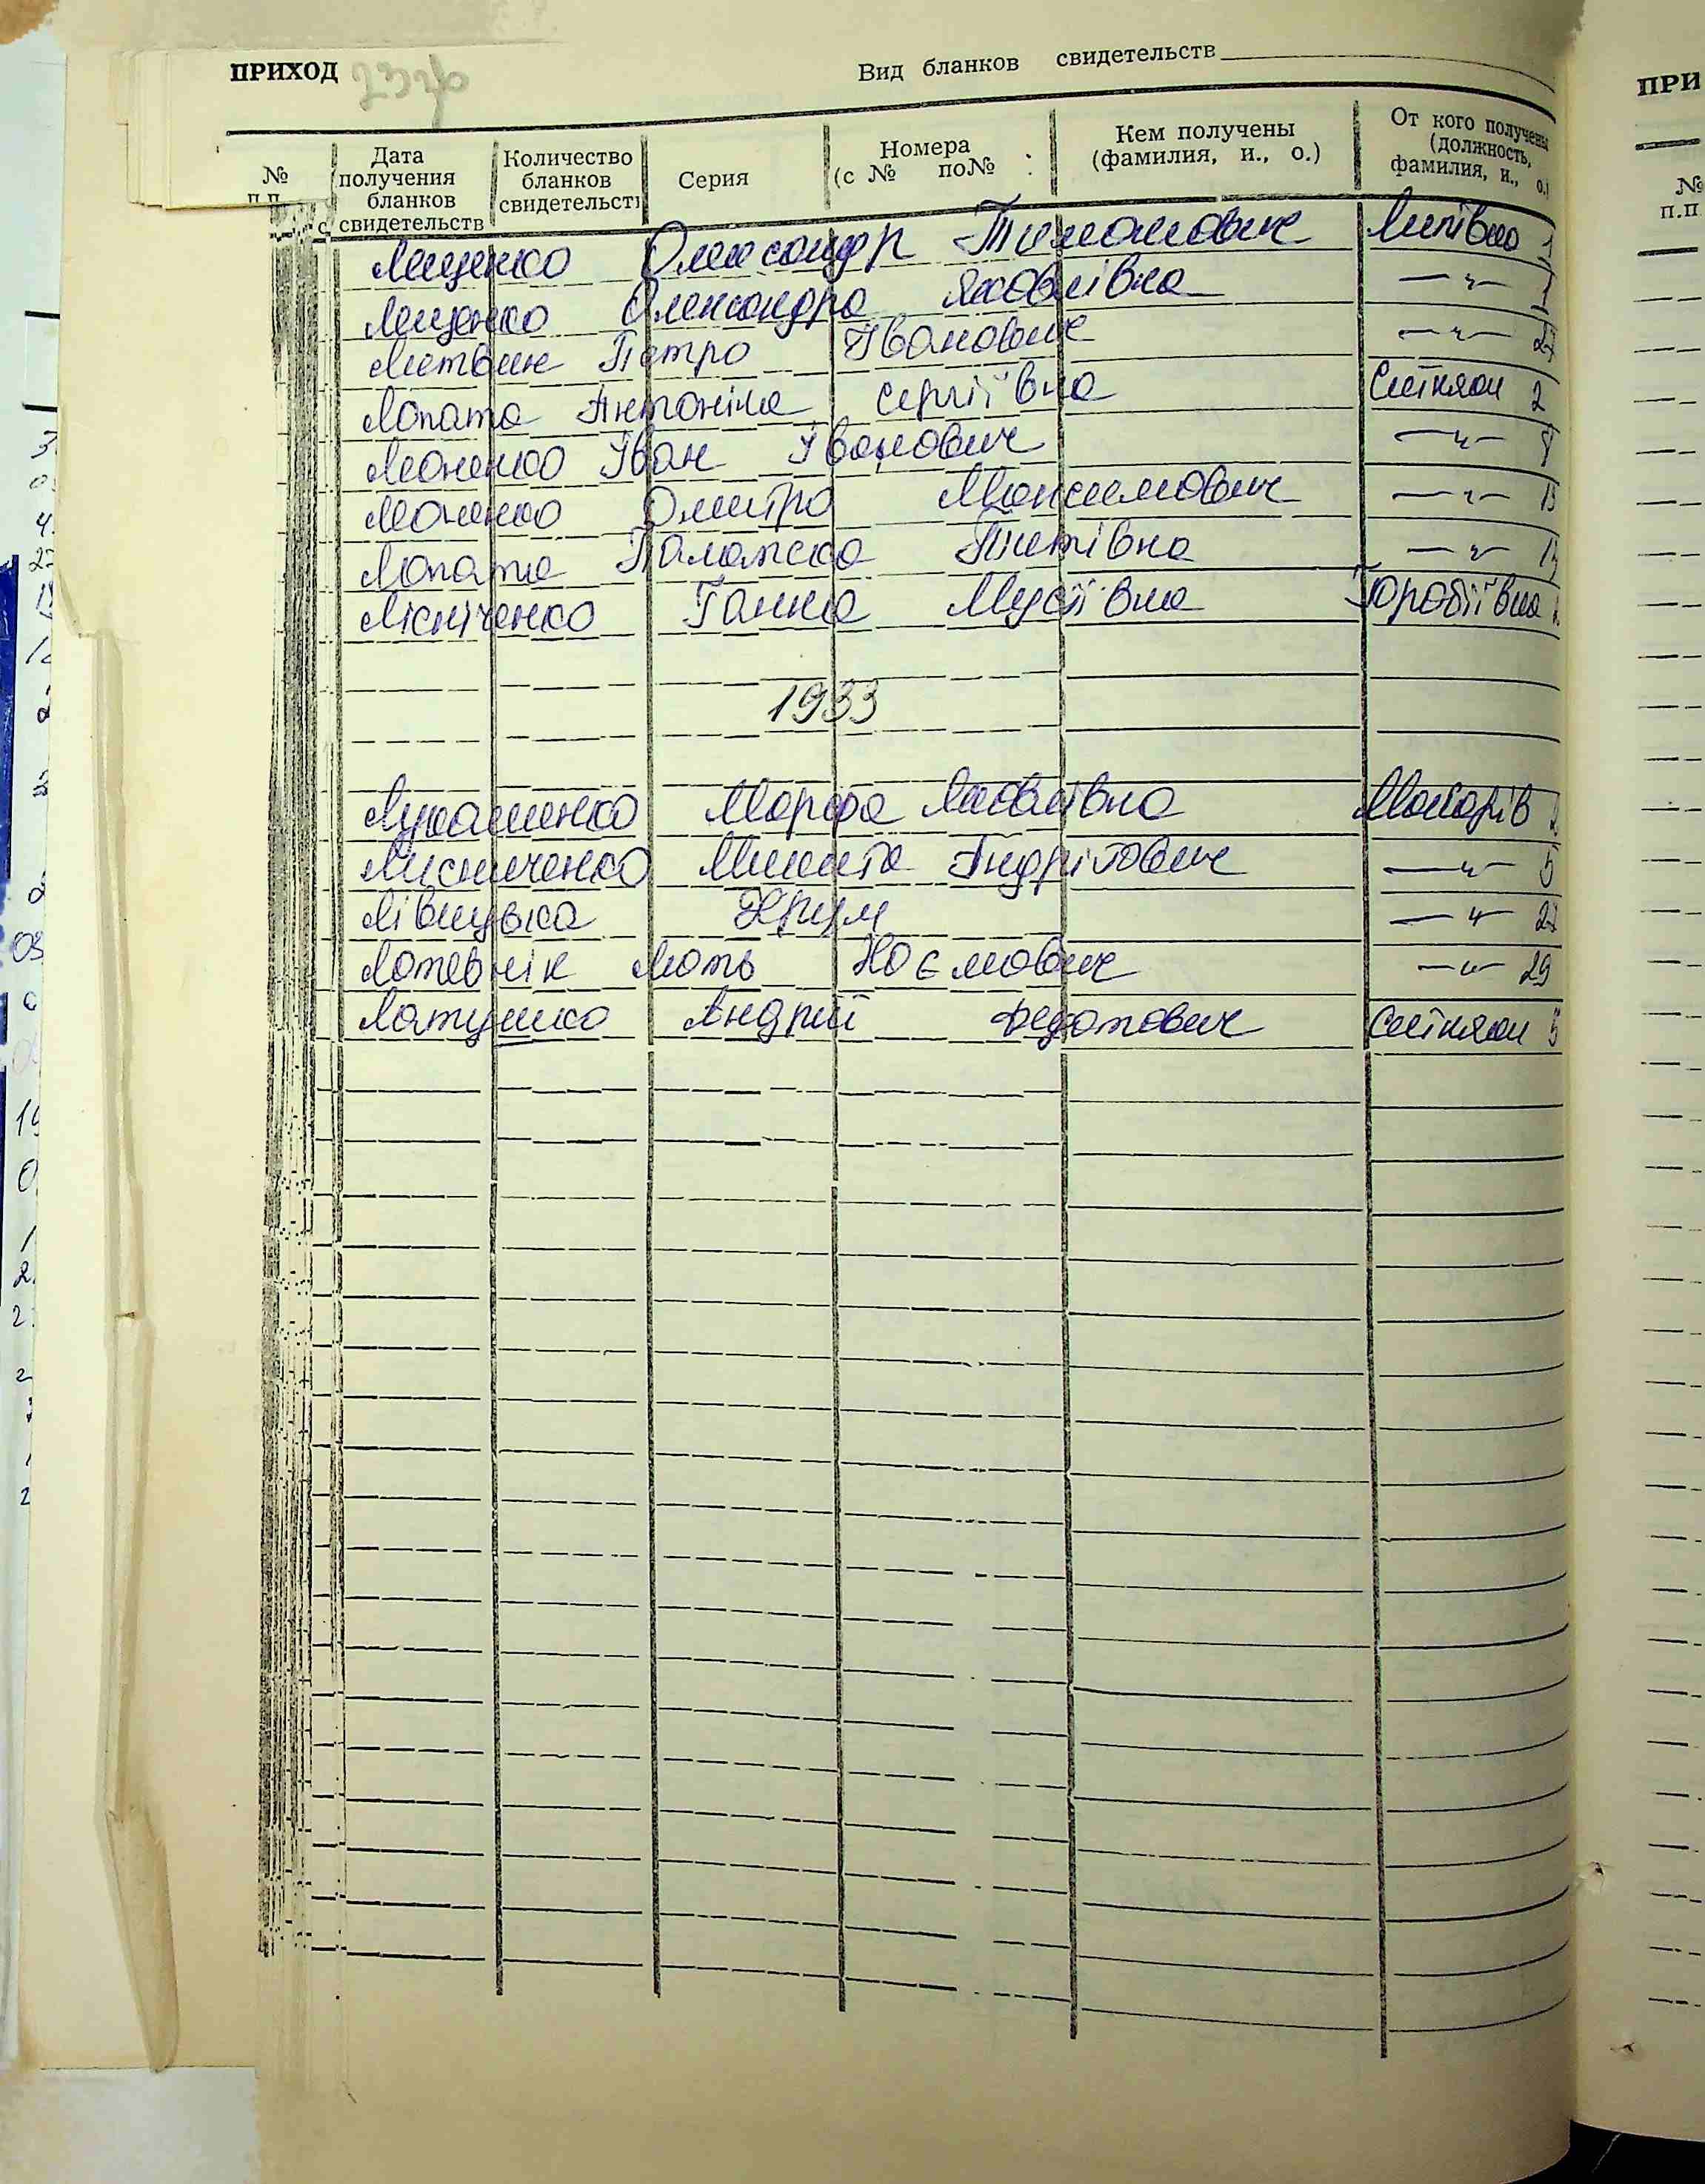 ПРИХОД 232зв
Вид бланков свидетельств
№ п.п.
Дата получения бланков свидетельств
Количество бланков свидетельств
Серия
Номера (с № по№
Кем получены (фамилия, и., о.)
От кого получены (должность, фамилия, и., о.)
Лещенко Олександр Тимонович Липівка 1
Лещенко Олександра Яковлівна —"— 1
Литвин Петро Іванович —"— 27
Лопата Антоніна Сергіївна Ситняки 2
Леоненко Іван Іванович —"— 8
Леоненко Дмитро Максимович —"— 13
Лопата Палажка Титівна —"—
Лісніченко Ганна Мусіївна Горобіївка
1933
Лукашенко Марфа Яковлівна Макарів 2
Лисниченко Микита Андрійович —"— 5
Лівшувка Хрум —"— 27
Лотевнік Моть Ноємович —"— 29
Латушко Андрій Федотович Ситняки 5
ПРИ
№ п.п